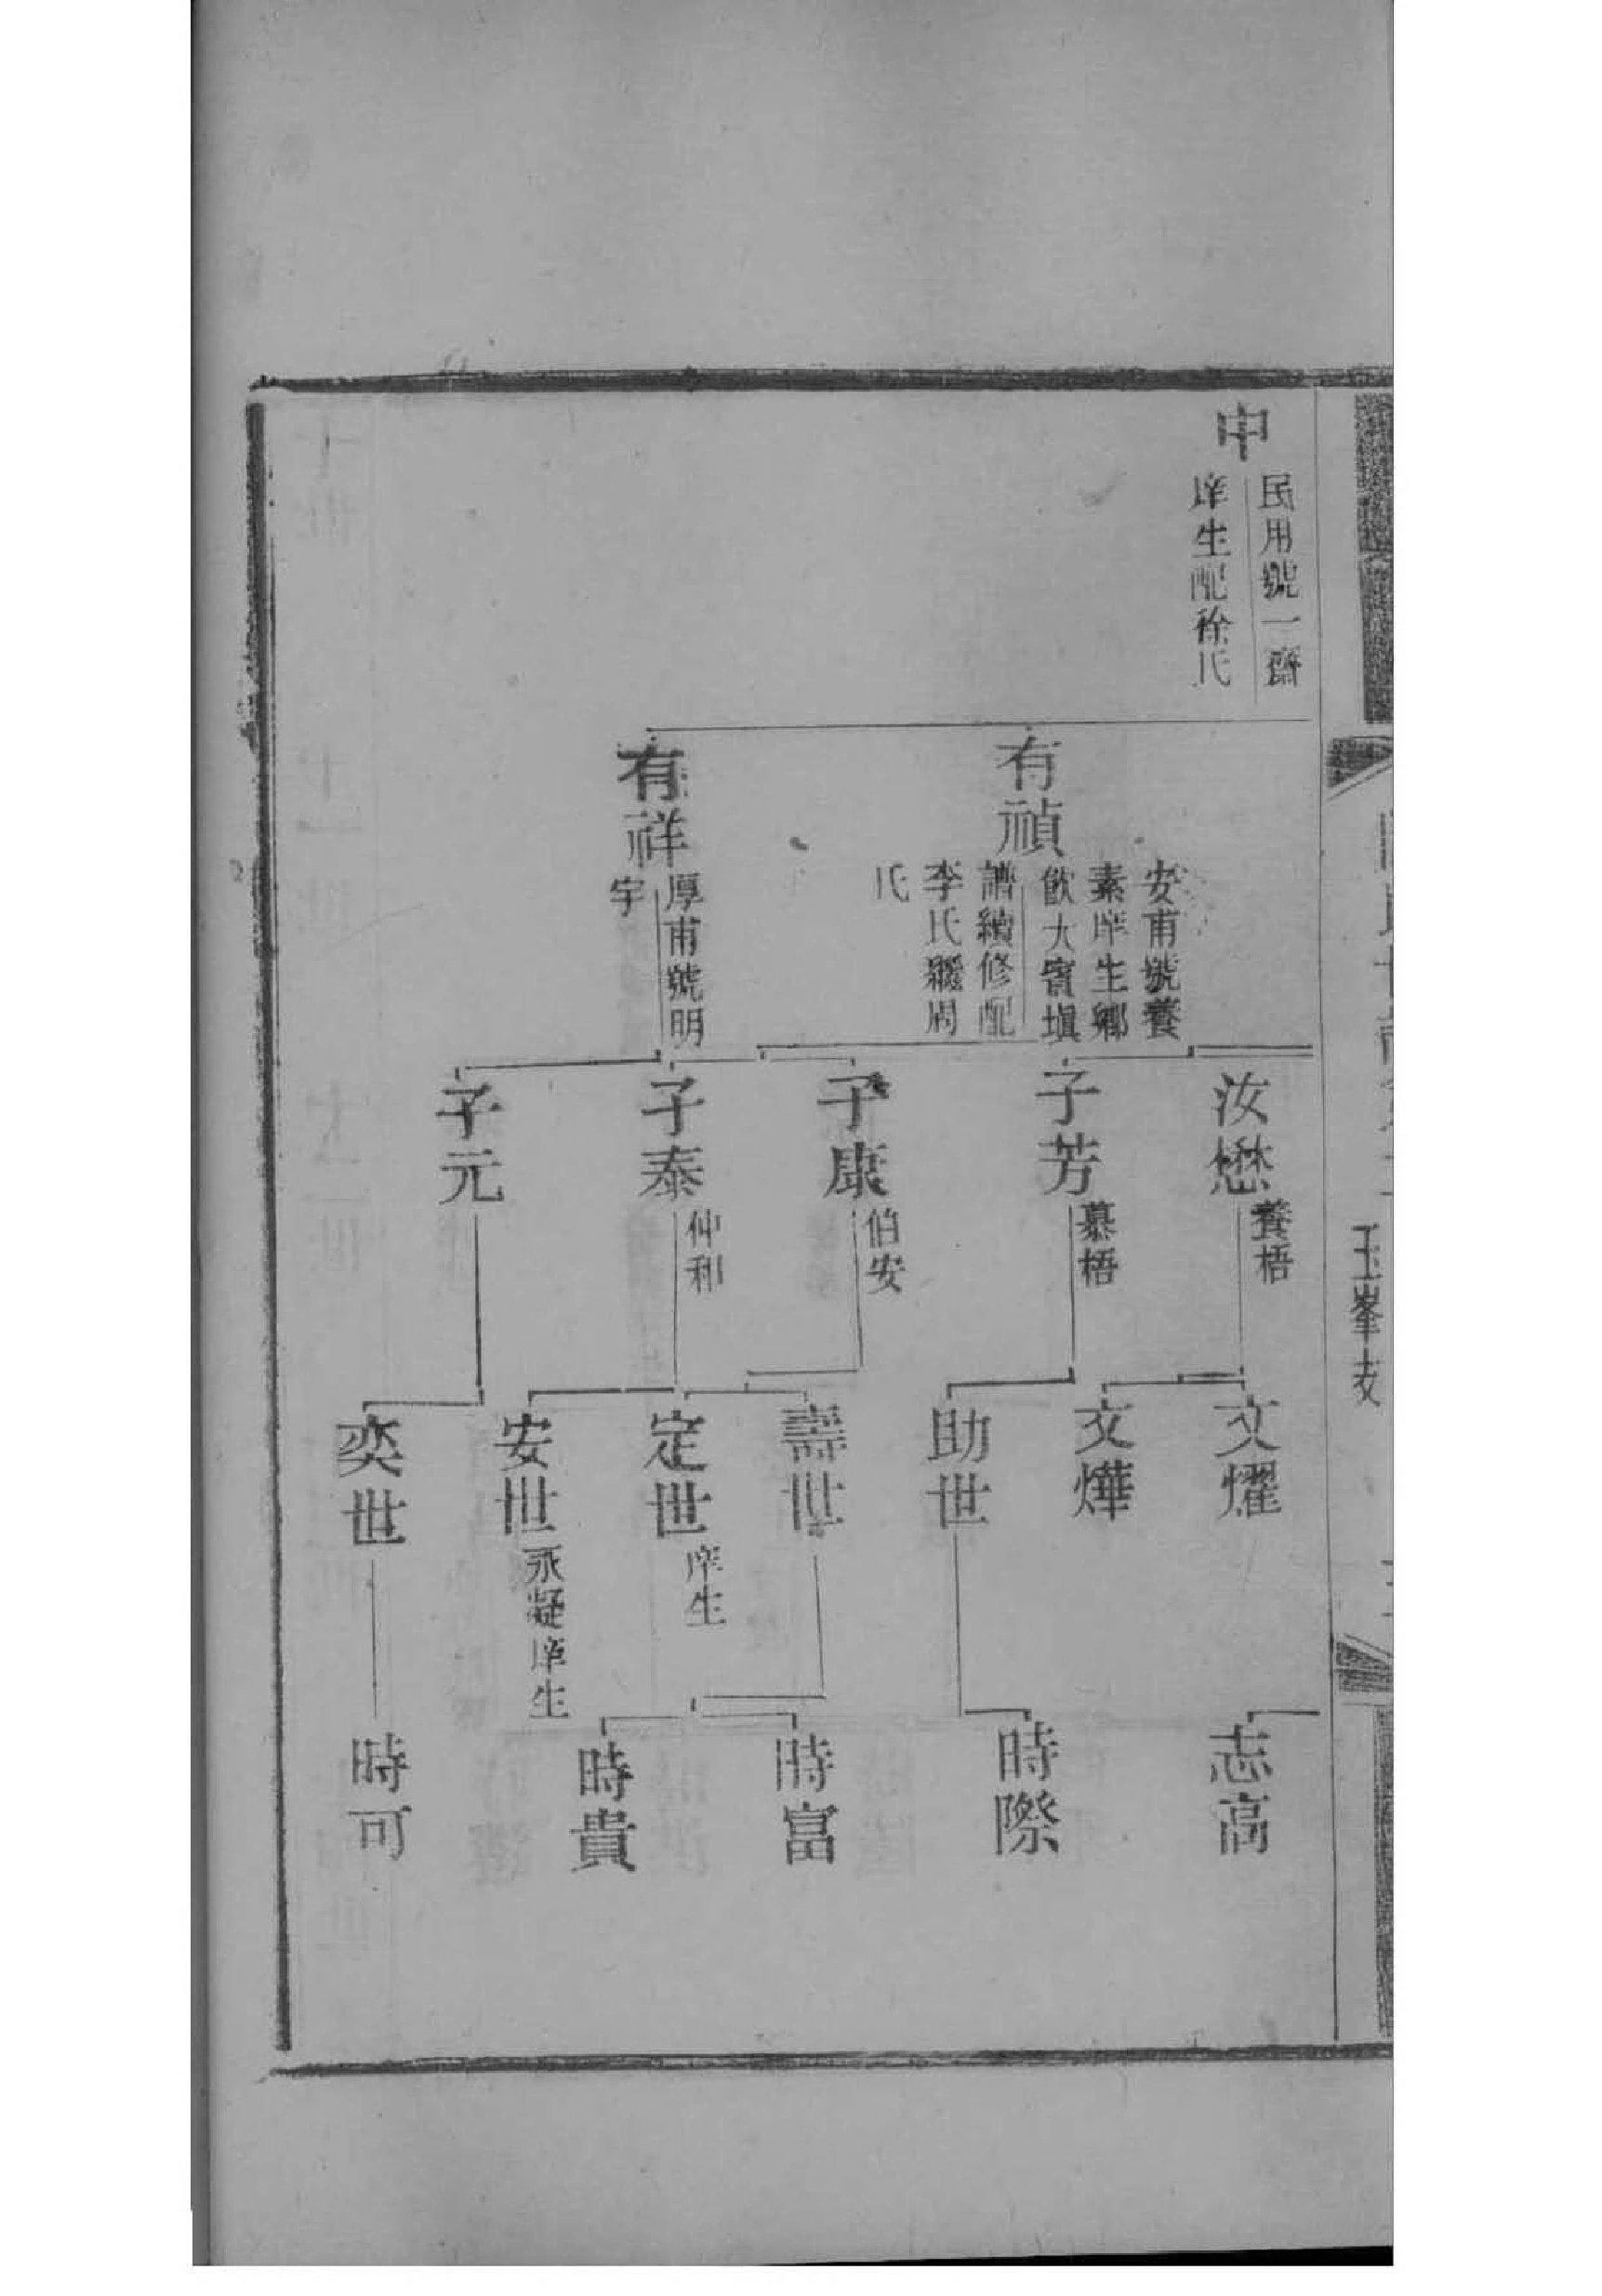 玉峯支
申
民用號一齋
庠生配徐氏
有禎
安甫號養
素庠生鄉
飮大賓塡
譜續修配
李氏繼周
氏
有祥
厚甫號明
宇
汝懋
養梧
子芳
慕梧
子康
伯安
子泰
仲和
子元
文燿
文燁
助世
壽世
定世
庠生
安世
永凝庠生
奕世
志高
時際
時富
時貴
時可